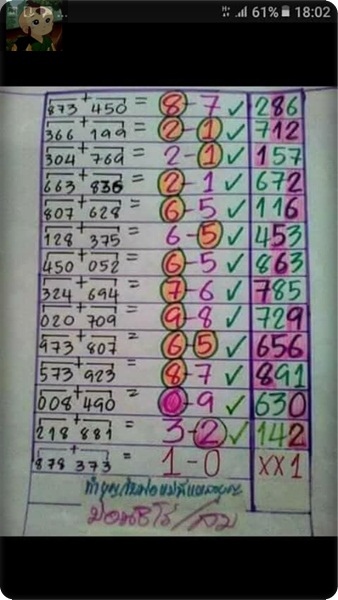 61% 18:02
873 + 450 = 8-7 ✓ 286
366 + 199 = 2-1 ✓ 712
304 + 769 = 2-1 ✓ 157
663 + 836 = 2-1 ✓ 672
807 + 628 = 6-5 ✓ 116
128 375 = 6-5 ✓ 453
450 + 052 = 6-5 ✓ 863
324 + 694 = 7-6 ✓ 785
020 + 709 = 9-8 ✓ 729
973 + 807 = 6-5 ✓ 656
573 + 923 = 8-7 ✓ 891
008 + 490 = 0-9 ✓ 630
218 + 881 = 3-2 ✓ 142
878 + 373 = 1-0 xx1